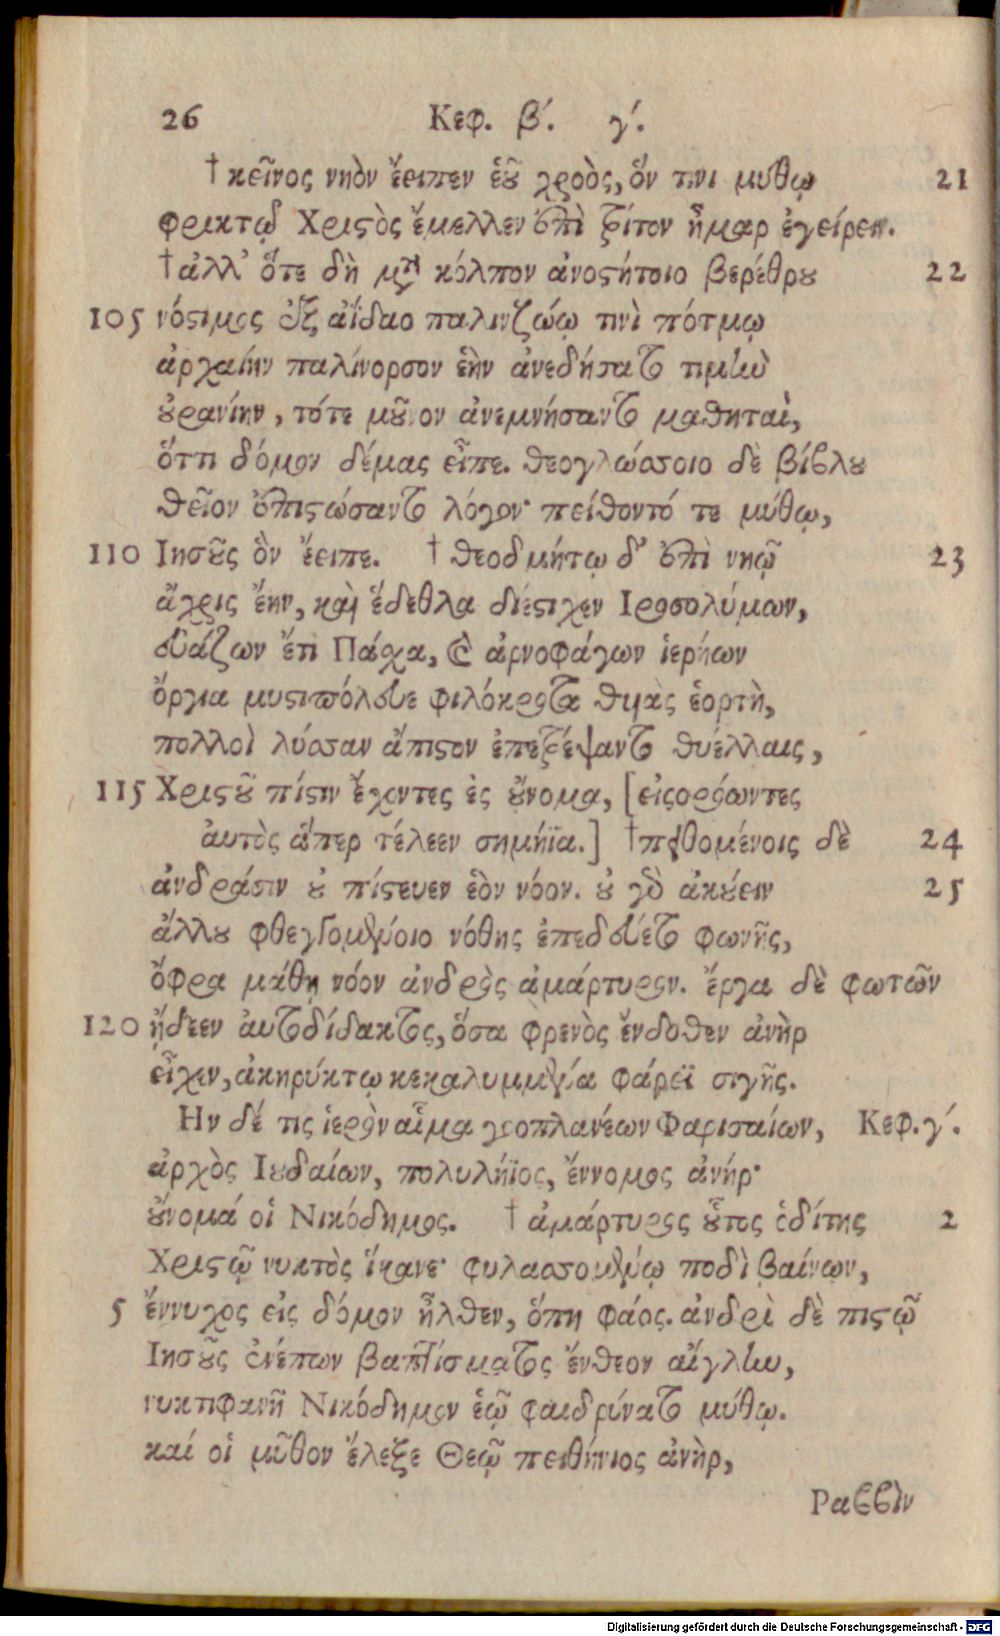 26 Κεφ. β΄. γ΄.
†κεῖνος νηὸν ἔειπεν ἑοῦ χροὸς, ὅν τινι μύθῳ 21
φρικτῷ Χριστὸς ἔμελλεν ἐπὶ τρίτον ἦμαρ ἐγείρειν.
†ἀλλ᾽ ὅτε δὴ μετὰ κόλπον ἀνοστήτοιο βερέθρου 22
105 νόστιμος ἐξ αἴδαο παλινζώῳ τινὶ πότμῳ
ἀρχαίην παλίνορσον ἑὴν ἀνεδήσατο τιμὴν
οὐρανίην, τότε μοῦνον ἀνεμνήσαντο μαθηταὶ,
ὅττι δόμον δέμας εἶπε. θεογλώσσοιο δὲ βίβλου
θεῖον ἐπιστώσαντο λόγον· πείθοντό τε μύθῳ,
110 Ιησοῦς ὃν ἔειπε. † θεοδμήτῳ δ᾽ ἐπὶ νηῷ 23
ἄχρις ἔην, καὶ ἔδεθλα διέστιχεν Ιεροσολύμων,
δυάζων ἔτι Πάσχα, καὶ ἀρνοφάγων ἱερήων
ὄργια μυστιπόλευε φιλόκροτα θυιὰς ἑορτὴ,
πολλοὶ λύσσαν ἄπιστον ἐπετρέψαντο θυέλλαις,
115 Χριστοῦ πίστιν ἔχοντες ἐς οὔνομα, [εἰσορόωντες
ἀυτὸς ἅπερ τέλεεν σημήϊα.] †πειθομένοις δὲ 24
ἀνδράσιν οὐ πίστευεν ἑὸν νόον. οὐ γὰρ ἀκούειν 25
ἄλλου φθεγγομένοιο νόθης ἐπεδεύετο φωνῆς,
ὄφρα μάθῃ νόον ἀνδρὸς ἀμάρτυρον. ἔργα δὲ φωτῶν
120 ᾔδεεν ἀυτοδίδακτος, ὅσα φρενὸς ἔνδοθεν ἀνὴρ
εἶχεν, ἀκηρύκτῳ κεκαλυμμένα φάρεϊ σιγῆς.
Ην δέ τις ἱερὸν αἷμα χοροπλανέων Φαρισαίων, Κεφ. γ΄.
ἀρχὸς Ιουδαίων, πολυλήϊος, ἔννομος ἀνήρ·
οὔνομά οἱ Νικόδημος. † ἀμάρτυρος οὗτος ὁδίτης 2
Χριστῷ νυκτὸς ἵκανε· φυλασσομένῳ ποδὶ βαίνων,
5 ἔννυχος εἰς δόμον ἦλθεν, ὅπη φάος. ἀνδρὶ δὲ πιστῷ
Ιησοῦς ἐνέπων βαπτίσματος ἔνθεον αἴγλην,
νυκτιφανῆ Νικόδημον ἑῷ φαιδρύνατο μύθῳ.
καί οἱ μῦθον ἔλεξε Θεῷ πειθήνιος ἀνὴρ,
Ραββὶν
Digitalisierung gefördert durch die Deutsche Forschungsgemeinschaft - DFG